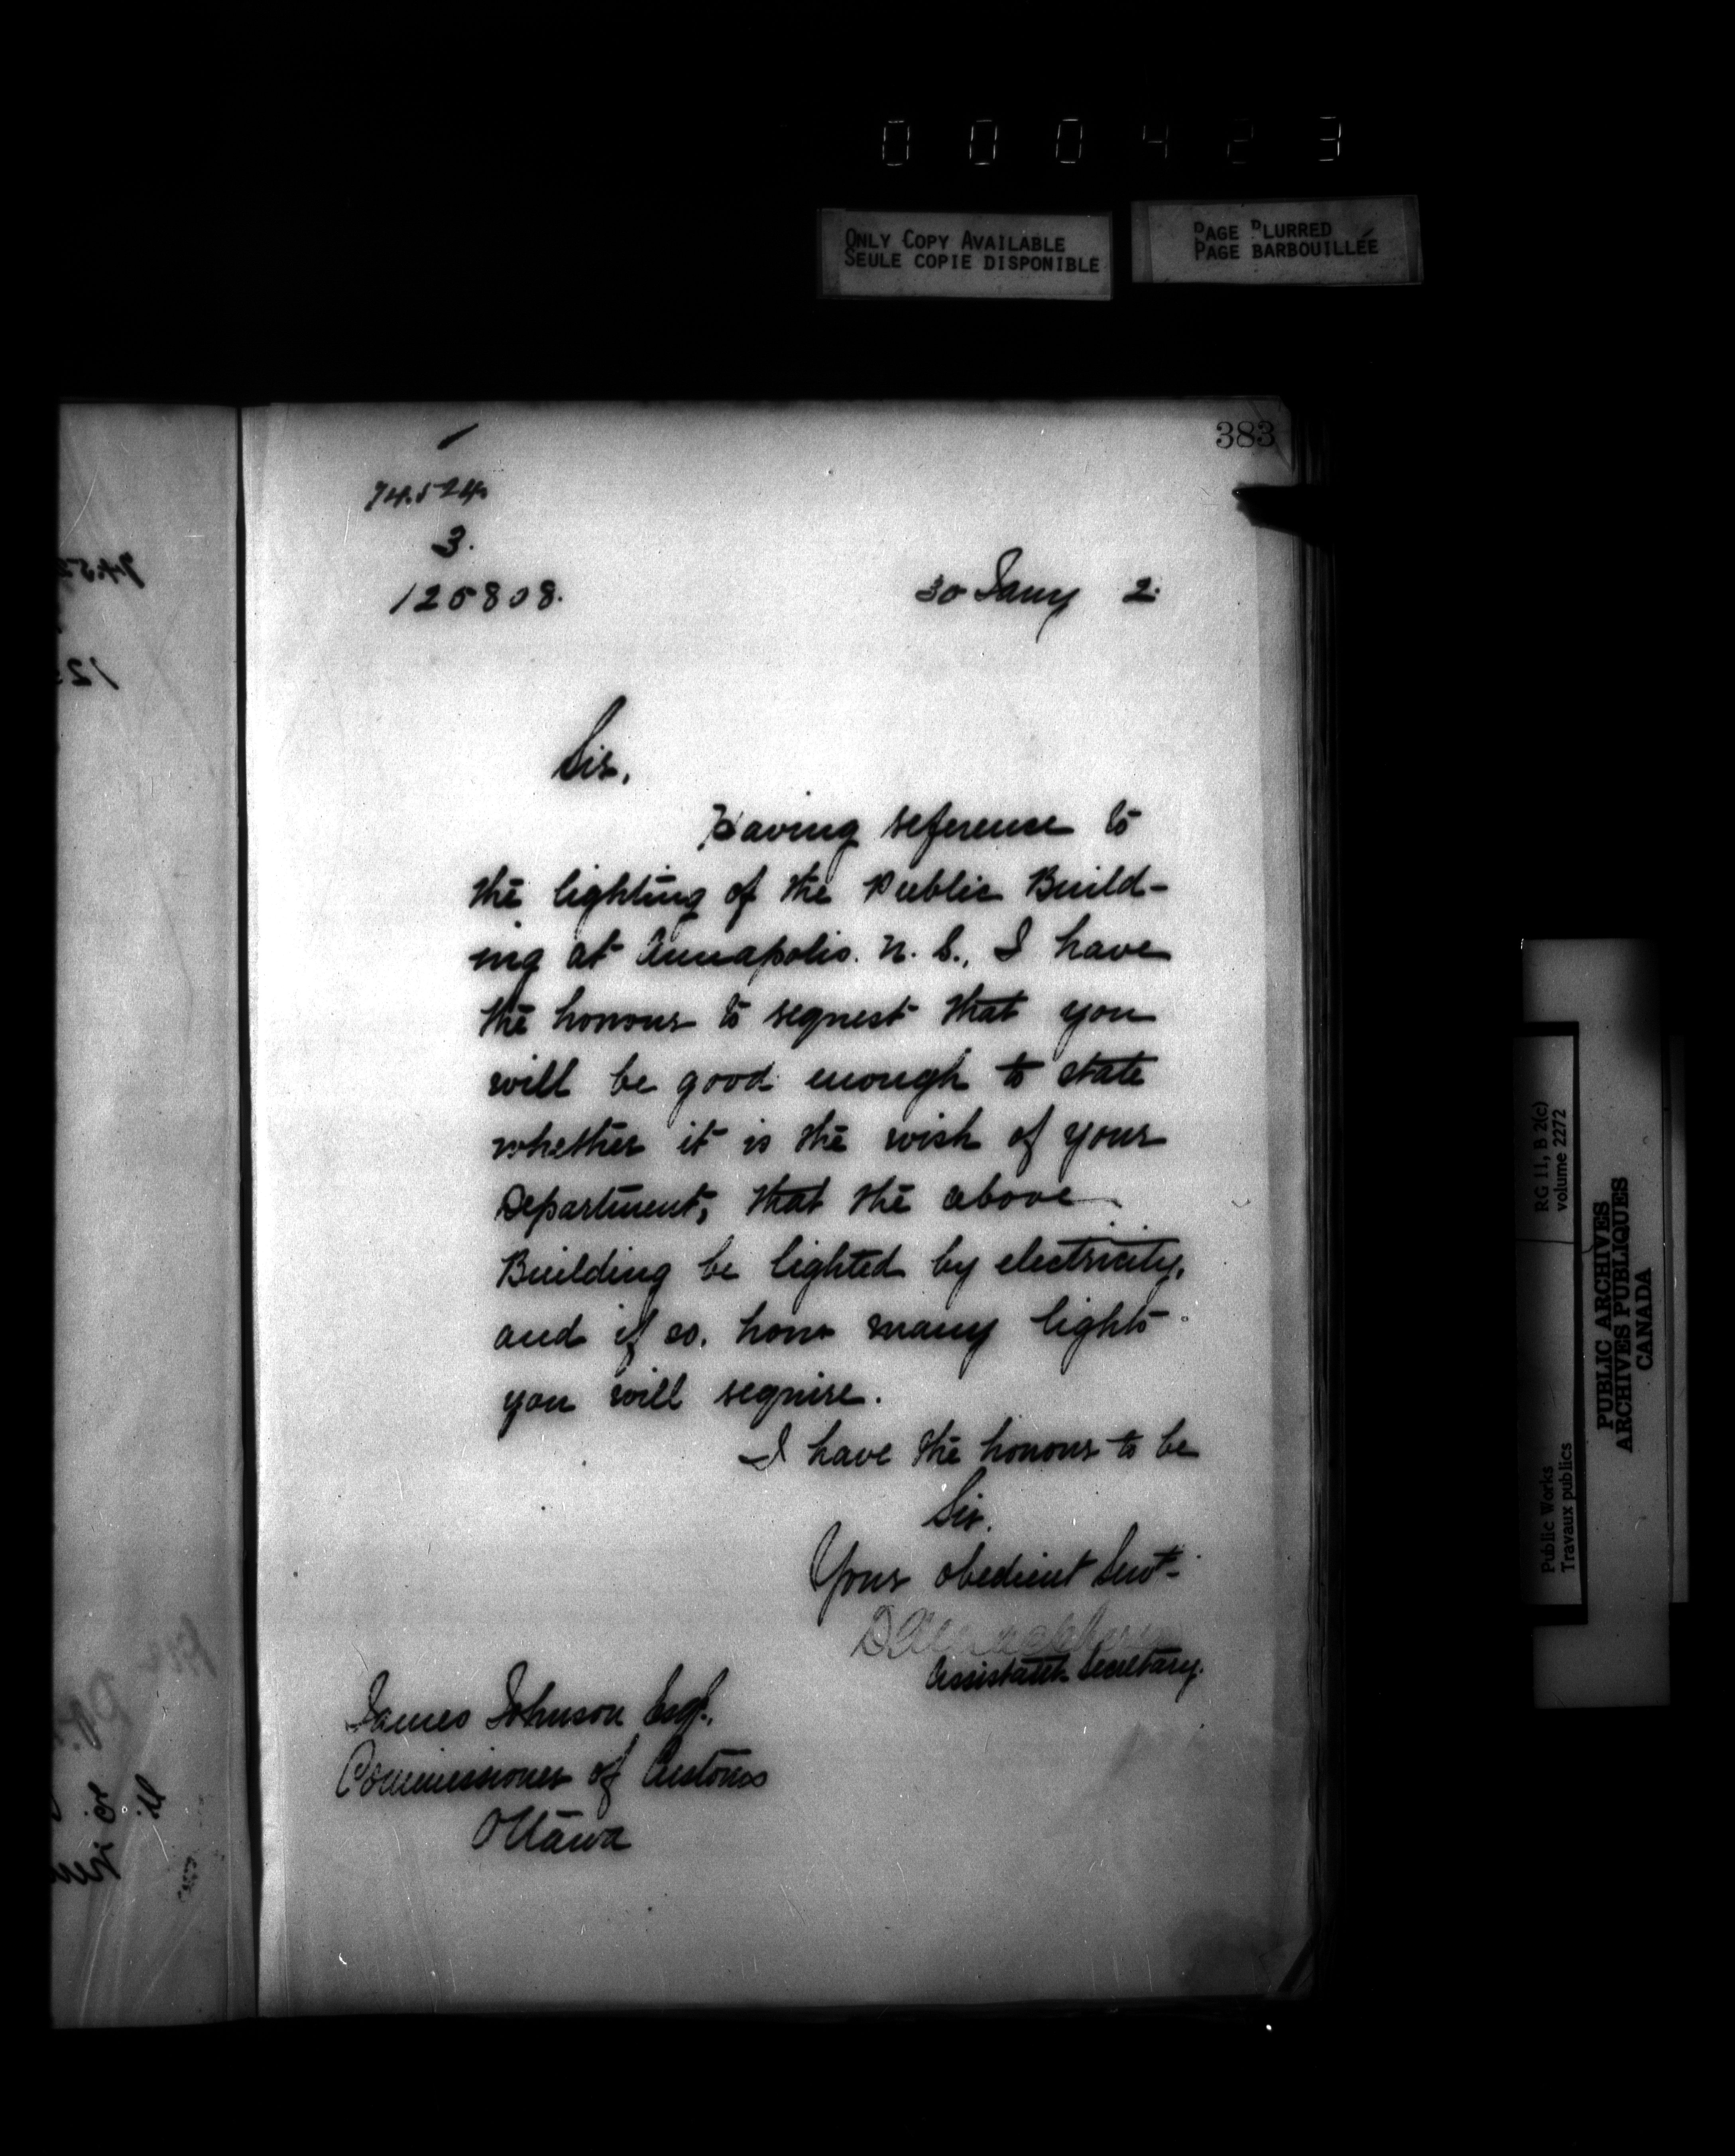 000423
ONLY COPY AVAILABLE
SEULE COPIE DISPONIBLE
PAGE BLURRED
PAGE BARBOUILLÉE
383
74.524.
3.
125808.
30 Jany 2.
Sir,
Having reference to
the lighting of the Public Build-
ing at Annapolis. N. S., I have
the honour to request that you
will be good enough to state
whether it is the wish of your
Department, that the above
Building be lighted by electricity,
and if so, how many lights
you will require.
I have the honour to be
Sir.
Your obedient Servt.
Assistant Secretary.
James Johnson Esq.,
Commissioner of Customs
Ottawa
RG 11, B 2(c)
volume 2272
Public Works
Travaux publics
PUBLIC ARCHIVES
ARCHIVES PUBLIQUES
CANADA